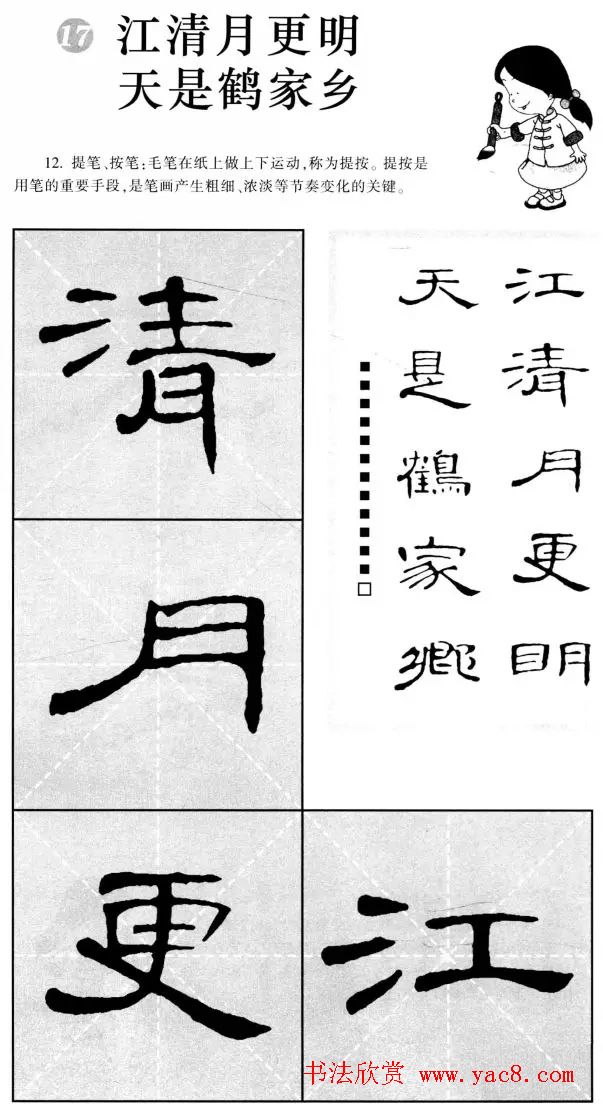 17 江清月更明
天是鹤家乡
12. 提笔、按笔：毛笔在纸上做上下运动，称为提按。提按是
用笔的重要手段，是笔画产生粗细、浓淡等节奏变化的关键。
江清月更眀
天是鶴家鄉
清
月
更
江
书法欣赏 www.yac8.com